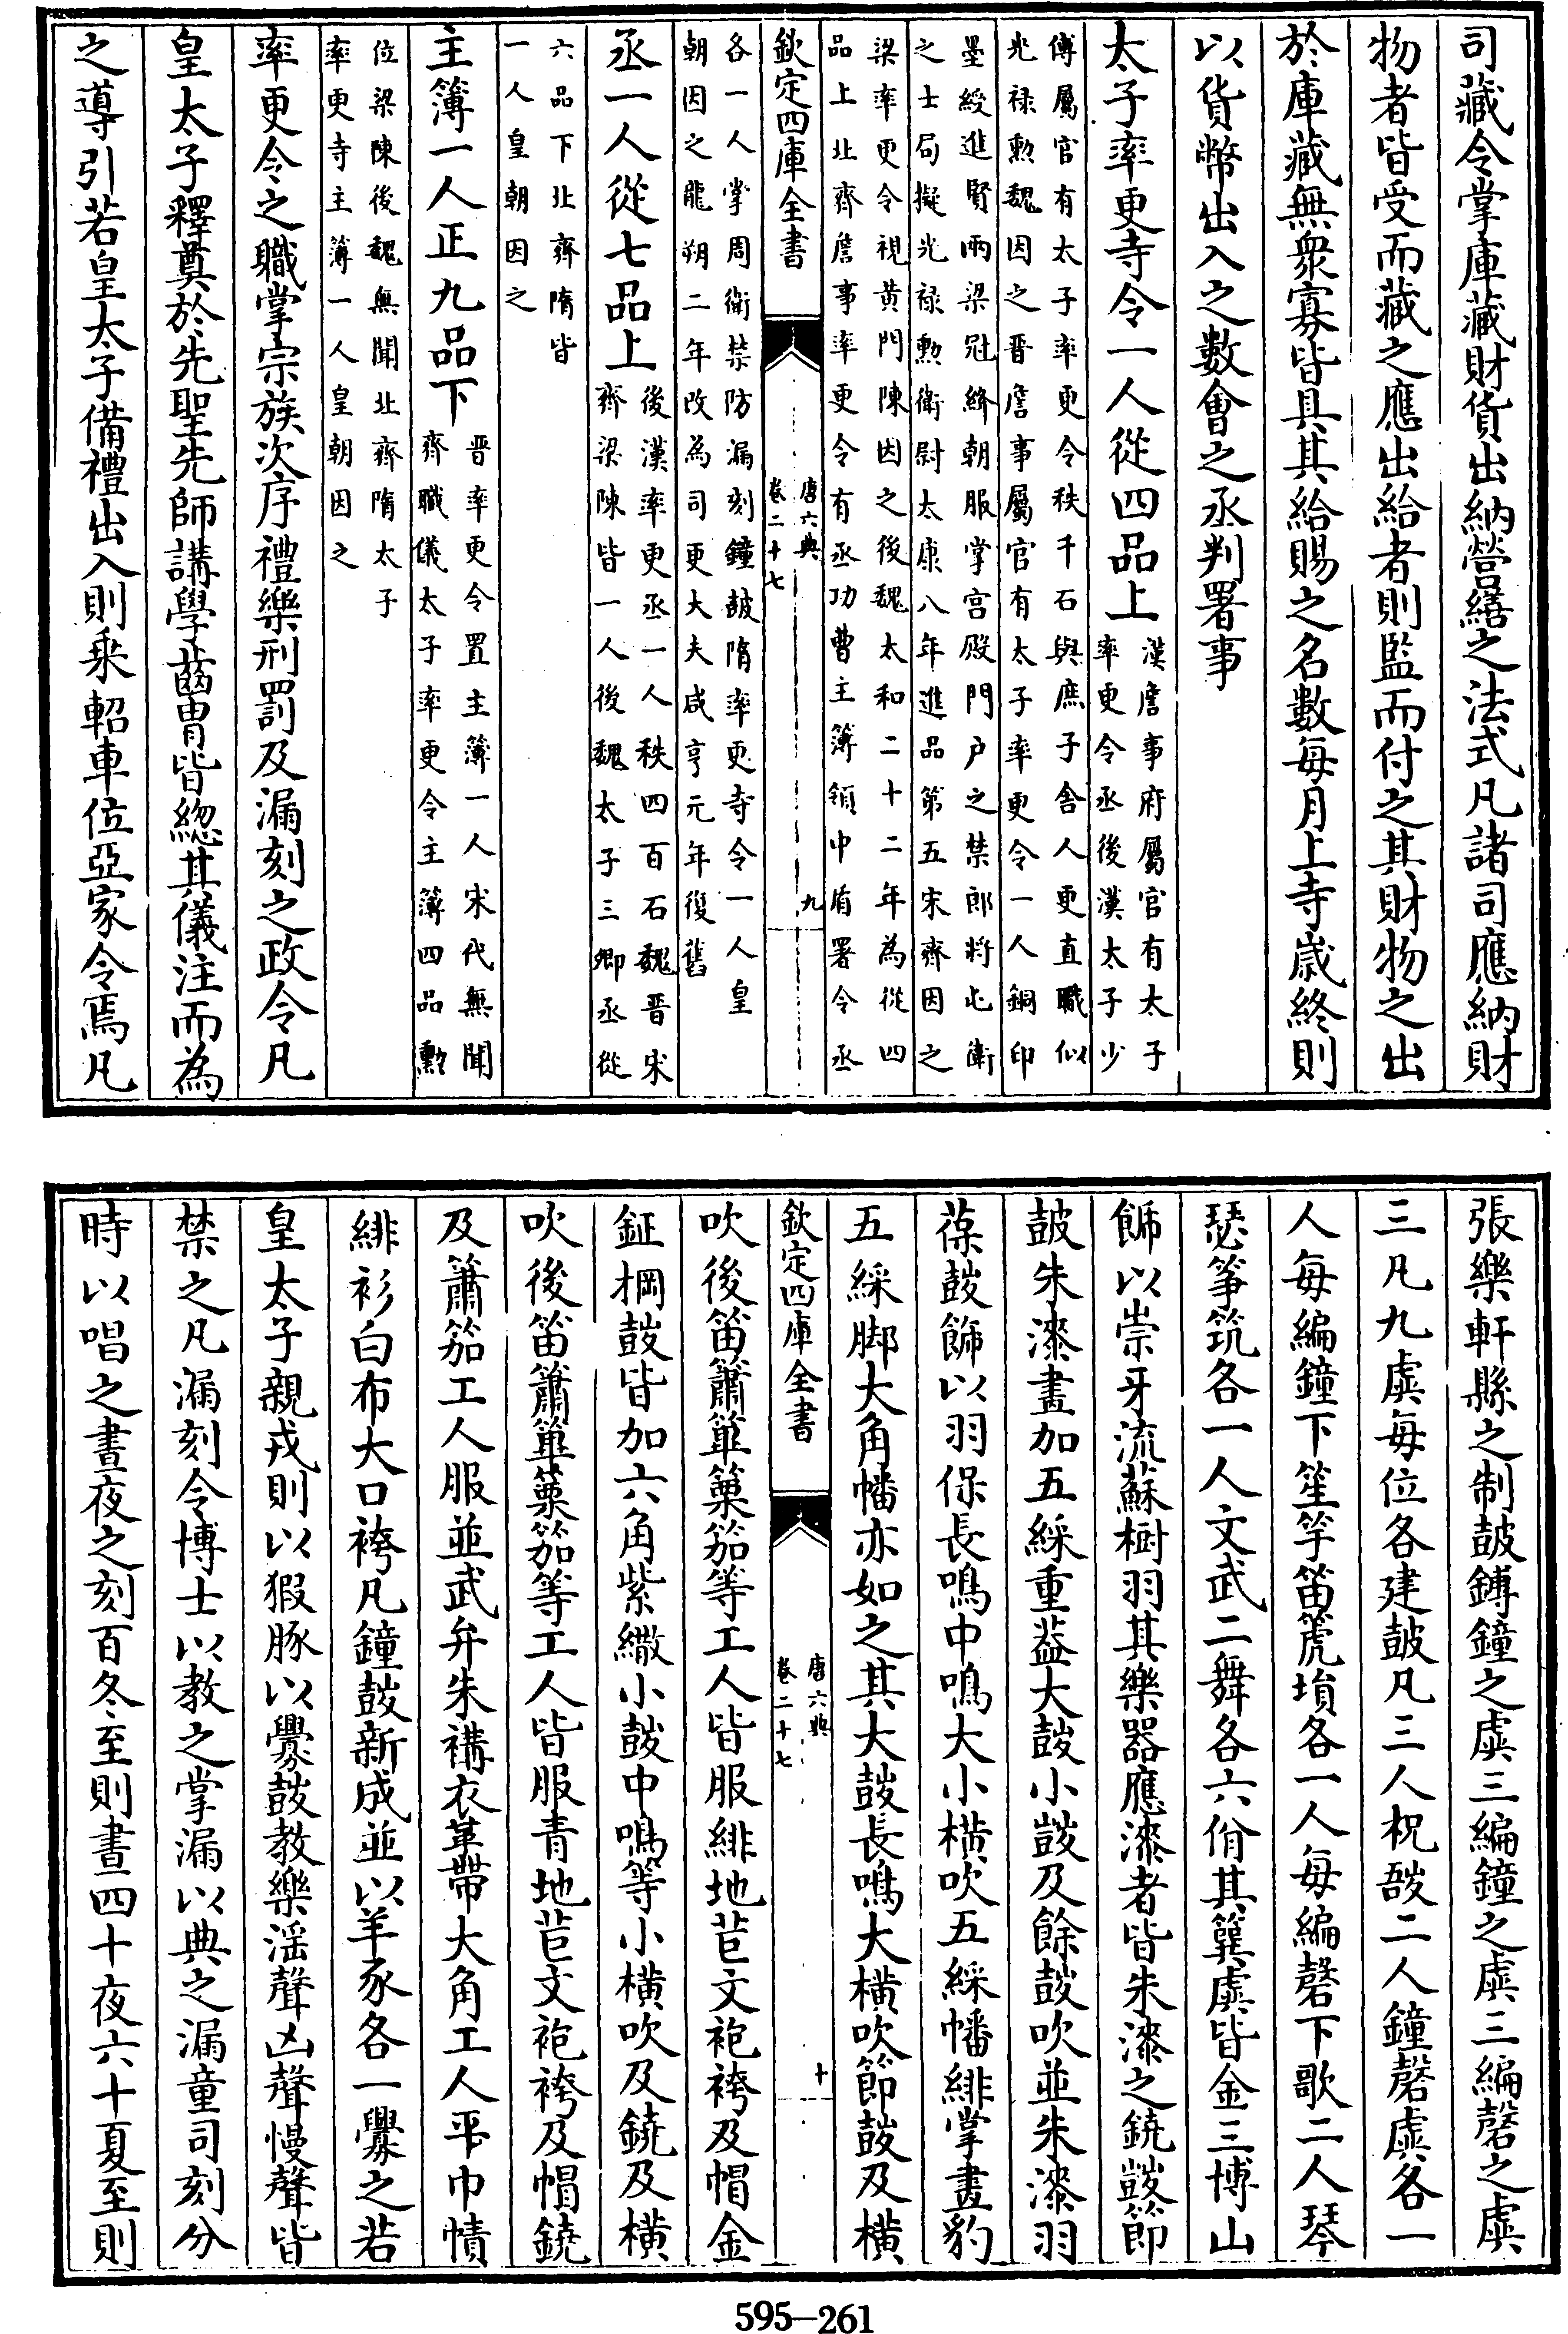 司藏令掌庫藏財貨出納營繕之法式凡諸司應納財
物者皆受而藏之應出給者則監而付之其財物之出
於庫藏無衆寡皆具其給賜之名數每月上寺歳終則
以貨幣出入之數會之丞判署事
太子率更寺令一人從四品上
漢詹事府屬官有太子
率更令丞後漢太子少
傅屬官有太子率更令秩千石與庶子舍人更直職似
光禄勲魏因之晉詹事屬官有太子率更令一人銅印
墨綬進賢兩梁冠絳朝服掌宫殿門户之禁郎將屯衛
之士局擬光禄勲衛尉太康八年進品第五宋齊因之
梁率更令視黄門陳因之後魏太和二十二年為從四
品上北齊詹事率更令有丞功曹主簿領中盾署令丞
欽定四庫全書
唐六典
卷二十七
九
各一人掌周衛禁防漏刻鐘皷隋率更寺令一人皇
朝因之龍朔二年改為司更大夫咸亨元年復舊
丞一人從七品上
後漢率更丞一人秩四百石魏晉宋
齊梁陳皆一人後魏太子三卿丞從
六品下北齊隋皆
一人皇朝因之
主簿一人正九品下
晉率更令置主簿一人宋代無聞
齊職儀太子率更令主簿四品勲
位梁陳後魏無聞北齊隋太子
率更寺主簿一人皇朝因之
率更令之職掌宗族次序禮樂刑罰及漏刻之政令凡
皇太子釋奠於先聖先師講學齒胄皆緫其儀注而為
之導引若皇太子備禮出入則乘軺車位亞家令焉凡
張樂軒縣之制皷鎛鐘之虡三編鐘之虡三編磬之虡
三凡九虡每位各建皷凡三人柷敔二人鐘磬虡各一
人每編鐘下笙竽笛篪塤各一人每編磬下歌二人琴
瑟筝筑各一人文武二舞各六佾其簨虡皆金三博山
飾以崇牙流蘇樹羽其樂器應漆者皆朱漆之鐃鼓節
皷朱漆畫加五綵重葢大鼓小鼓及餘鼓吹並朱漆羽
葆鼓飾以羽保長鳴中鳴大小橫吹五綵幡緋掌畫豹
五綵脚大角幡亦如之其大鼓長鳴大橫吹節鼓及橫
欽定四庫全書
唐六典
卷二十七
十
吹後笛簫篳篥笳等工人皆服緋地苣文袍袴及帽金
鉦棡鼓皆加六角紫繖小鼓中鳴等小橫吹及鐃及橫
吹後笛簫篳篥笳等工人皆服青地苣文袍袴及帽鐃
及簫笳工人服並武弁朱褠衣革帶大角工人平巾幘
緋衫白布大口袴凡鐘鼓新成並以羊豕各一釁之若
皇太子親戎則以豭豚以釁鼓教樂淫聲凶聲慢聲皆
禁之凡漏刻令博士以教之掌漏以典之漏童司刻分
時以唱之晝夜之刻百冬至則晝四十夜六十夏至則
595—261